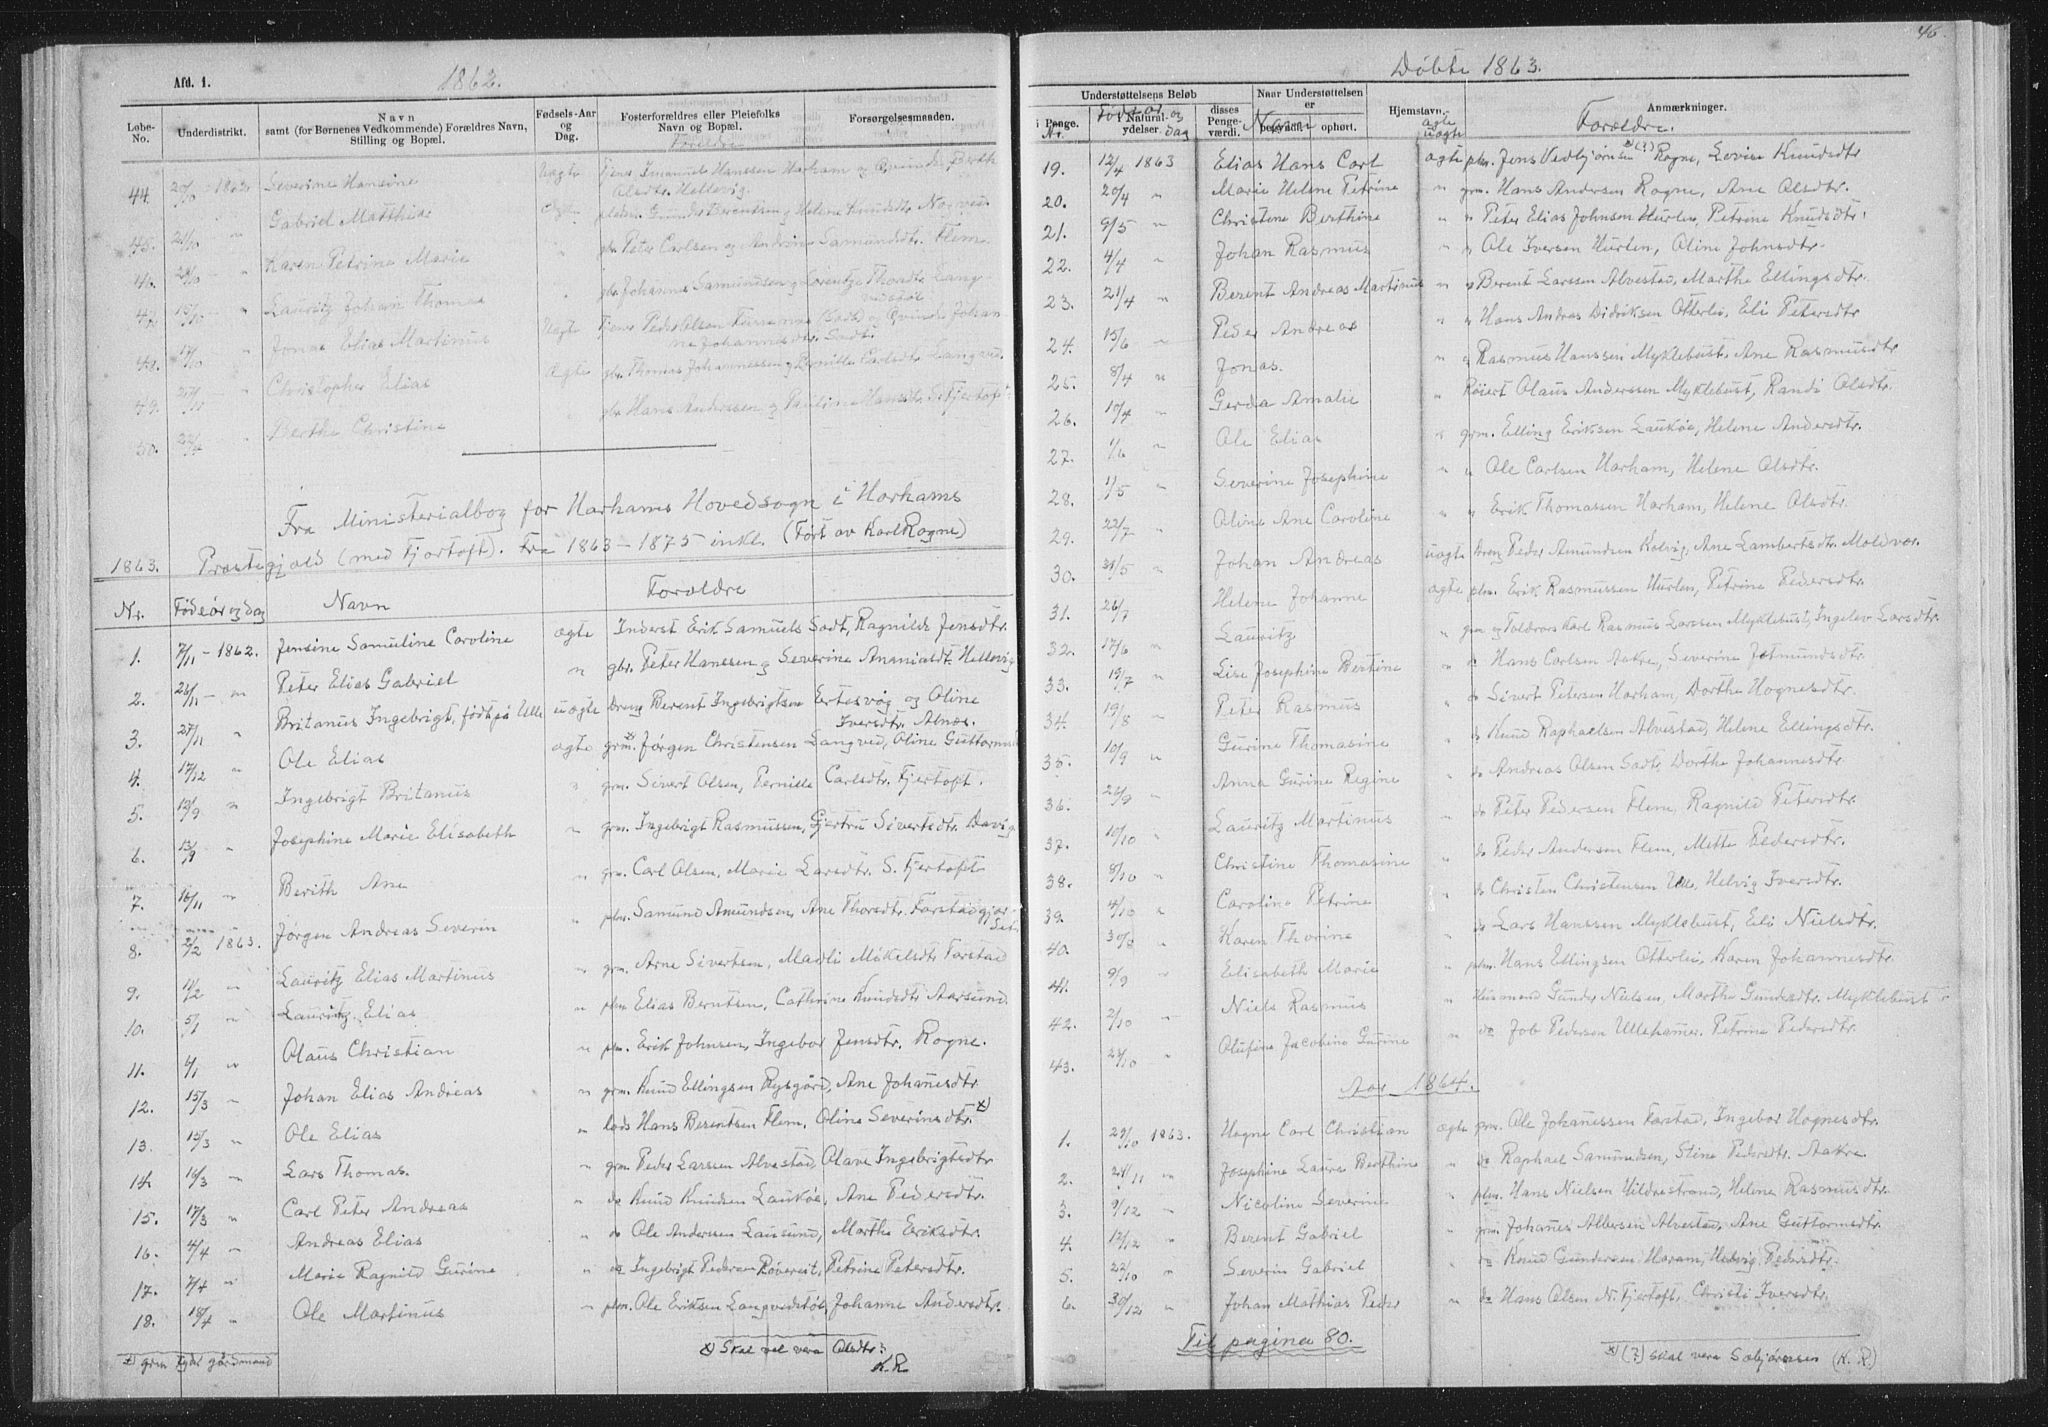 Afd. 1.
1862.
Løbe-No.
Underdistrikt.
Navn
samt (for Børnenes Vedkommende) Forældres Navn,
Stilling og Bopæl.
Fødsels-Aar
og
Dag.
Fosterforældres eller Pleiefolks
Navn og Bopæl.
Forældre
Forsørgelsesmaaden.
44. 20/10 1862 Severine Hansine Uægte
Gabriel Matthias Ægte
Karen Petrine Marie " gbr. Peter Carlsen og Andrine Samundsdtr. Flem
Lauritz Johan Thomas gbr. Johannes Samundsen og Lorentze Thorsdtr. Lang-
Jonas Elias Martinus Uægte
ne Johannesdtr. Sadt.
Christopher Elias Ægte gbr. Thomas Johannessen og Pernille Carlsdtr. Langved.
50. Berthe Christine " gbr. Hans Anderssen og Pauline Hansdtr. S. Fjertoft
Fra Ministerialbog for Harhams Hovedsogn i Harhams
1863. Præstegjæld (med Fjertoft). Fra 1863-1875 inkl. (Ført av Karl Rogne)
Nr. Fødeår og dag Navn Forældre
1. 7/11 - 1862. Jensine Samueline Caroline ægte Inderst Erik Samuels Sadt, Ragnilde Jensdtr.
2. 26/11 - " Peter Elias Gabriel " gbr. Peter Hanssen og Severine Ananiasdt. Hellevig
3. 27/11 " Britanus Ingebrigt, født på Ulle uægte Dreng Berent Ingebrigtsen Eertesvåg og Oline
Iversdtr. Alnæs.
4. 17/12 " Ole Elias ægte grm. x) Jørgen Christensen Langved, Oline Guttorms
5. 12/9 " Ingebrigt Britanus " grm. Sivert Olsen, Pernille Carlsdtr. Fjertoft.
6. 13/9 " Josephine Marie Elisabeth " grm. Ingebrigt Rasmussen, Gjertru Sivertsdtr. Davig
7. 16/11 " Berith Ane " grm. Carl Olsen, Marie Larsdtr. S. Fjertoft
8. 2/2 1863. Jørgen Andreas Severin " plm. Samund Amundsen, Ane Thorsdtr. Farstadgjær-
det.
9. 10/2 " Lauritz Elias Martinus " grm. Arne Sivertsen, Madli Mikelsdtr Farstad
10. 5/1 " Lauritz Elias " plm. Elias Berntsen, Cathrine Knudsdtr Aarsund.
11. 4/1 " Olaus Christian " plm. Erik Johnsen, Ingebor Jensdtr. Rogne.
12. 15/3 " Johan Elias Andreas " grm. Knud Ellingsen Rysgård, Ane Johanesdtr.
13. 15/3 " Ole Elias " lods Hans Berentsen Flem, Oline Severinsdtr. x)
14. 16/3 " Lars Thomas. " grm. Peder Larssen Alvestad, Olave Ingebrigtsdtr
15. 17/3 " Carl Peter Andreas " do Knud Knudsen Laukøe, Ane Pedersdtr.
16. 4/4 " Andreas Elias " do Ole Anderssen Lausund, Marthe Eriksdtr.
17. 7/4 " Marie Ragnild Gurine " do Ingebrigt Pedersen Røvereit, Petrine Petersdtr.
18. 18/4 " Ole Martinus " plm. Ole Eriksen Langvedstøl, Johanne Andersdtr.
x) grm tyder gårdmand
x) Skal vel vera Olsdtr.
K.R.
46.
Døbte 1863.
Understøttelsens Beløb
i Penge.
Nr.
i Natural-
ydelser.
Føde-år og Dag
disses
Penge-
værdi.
Naar Understøttelsen
er
begyndt. ophørt.
Navn
Hjemstavn.
ægte
uægte
Anmærkninger.
Forældre.
19. 12/4 1863 Elias Hans Carl ægte plm. Jens Vedbjørnsen x(?) Rogne, Lovise Knudsdtr
20. 20/4 " Marie Helene Petrine " grm. Hans Andersen Rogne, Ane Olsdtr.
21. 9/5 " Christine Berthine " " Peter Elias Johnsen Hurlen, Petrine Knudsdtr.
22. 4/4 " Johan Rasmus " " Ole Iversen Hurlen, Oline Johnsdtr.
23. 21/4 " Berent Andreas Martinus " " Berent Larssen Alvestad, Marthe Ellingsdtr.
24. 15/6 " Peder Andreas " " Hans Andreas Didriksen Otterlei, Eli Petersdtr
25. 8/4 " Jonas. " " Rasmus Hanssen Myklebust, Ane Rasmusdtr
26. 10/4 " Gerda Amalie " Røiert Olaus Anderssen Myklebust, Randi Olsdtr.
27. 1/6 " Ole Elias " grm. Elling Eriksen Laukøe, Helene Andersdtr.
28. 11/5 " Severine Josephine " " Ole Carlsen Harham, Helene Olsdtr.
29. 22/7 " Oline Ane Caroline " " Erik Thomassen Harham, Helene Olsdtr.
30. 31/5 " Johan Andreas uægte Dreng Peder Amundsen Kolvig, Ane Lambertsdtr. Moldvær.
31. 26/7 " Helene Johanne ægte plm. Erik Rasmussen Hurlen, Petrine Pedersdtr.
32. 17/6 " Lauritz " grm og Toldrors Karl Rasmus Larssen Myklebust, Ingelev Larsdtr.
33. 19/7 " Lise Josephine Bertine " do Hans Carlsen Aakre, Severine Jetmundsdtr.
34. 19/8 " Peter Rasmus " do Sivert Petersen Harham, Dorthe Hognesdtr.
35. 10/9 " Gurine Thomasine " do Knud Raphaelsen Alvestad, Helene Ellingsdtr.
36. 26/9 " Anna Gurine Regine " do Andreas Olsen Sadt, Dorthe Johannesdtr.
37. 10/10 " Lauritz Martinus " do Peter Pedersen Flem, Ragnild Petersdtr.
38. 8/10 " Christine Thomasine " do Peder Andersen Flem, Mette Pedersdtr.
39. 4/10 " Caroline Petrine " do Christen Christensen Ulle, Helvig Iversdtr.
40. 30/8 " Karen Thorine " do Lars Hanssen Myklebust, Eli Nielsdtr.
41. 9/9 " Elisabeth Marie " plm. Hans Ellingsen Otterlei, Karen Johannesdtr.
42. 2/10 " Niels Rasmus " Husmand Gunder Nielsen, Marthe Gundersdtr. Myklebust
43. 23/10 " Olufine Jacobine Gurine " do Job Pedersen Ullehamer. Petrine Pedersdtr.
Aar 1864.
1. 29/10 1863. Hogne Carl Christian ægte grm. Ole Johanessen Farstad, Ingebor Hognesdtr.
2. 24/11 " Josephine Laura Berthine " do Raphael Samundsen, Stine Pedersdtr. Aakre
3. 9/12 " Nicoline Severine " plm. Hans Nielsen Hildrestrand, Helene Rasmusdtr.
4. 12/12 " Berent Gabriel " grm. Johanes Albersen Alvestad, Ane Guttormsdtr.
5. 22/10 " Severin Gabriel " do Knud Gundersen Haram, Helvig Pedersdtr.
6. 30/12 " Johan Mathias Peder " do Hans Olsen N. Fjertoft, Christi Iversdtr.
Til pagina 80.
x) (?) skal vera Sæbjørnsen (K.R.)